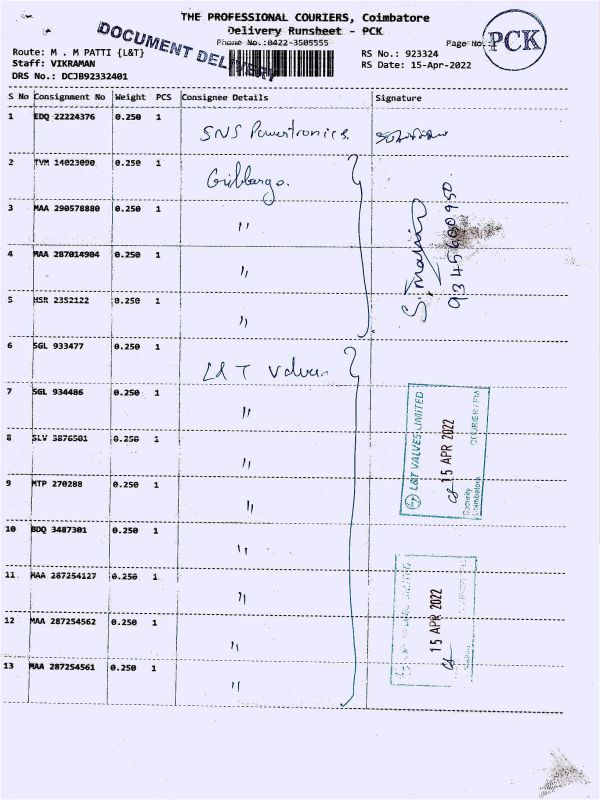 THE PROFESSIONAL COURIERS, Coimbatore
Delivery Runsheet - PCK
Phone No.:0422-3505555
Page No.:
PCK
DOCUMENT DELIVERY
Route: M . M PATTI {L&T}
Staff: VIKRAMAN
DRS No.: DCJB92332401
RS No.: 923324
RS Date: 15-Apr-2022
S No Consignment No Weight PCS Consignee Details Signature
1 EDQ 22224376 0.250 1 SNS Powertronics
2 TVM 14023090 0.250 1
3 MAA 290578880 0.250 1 "
4 MAA 287014904 0.250 1 "
5 HSR 2352122 0.250 1 "
9345600950
6 SGL 933477 0.250 1 L & T Valves
7 SGL 934486 0.250 1 "
8 SLV 3876501 0.250 1 "
9 MTP 270288 0.250 1 "
10 BDQ 3487301 0.250 1 "
11 MAA 287254127 0.250 1 "
12 MAA 287254562 0.250 1 "
13 MAA 287254561 0.250 1 "
L&T VALVES LIMITED
15 APR 2022
Security
Coimbatore
15 APR 2022